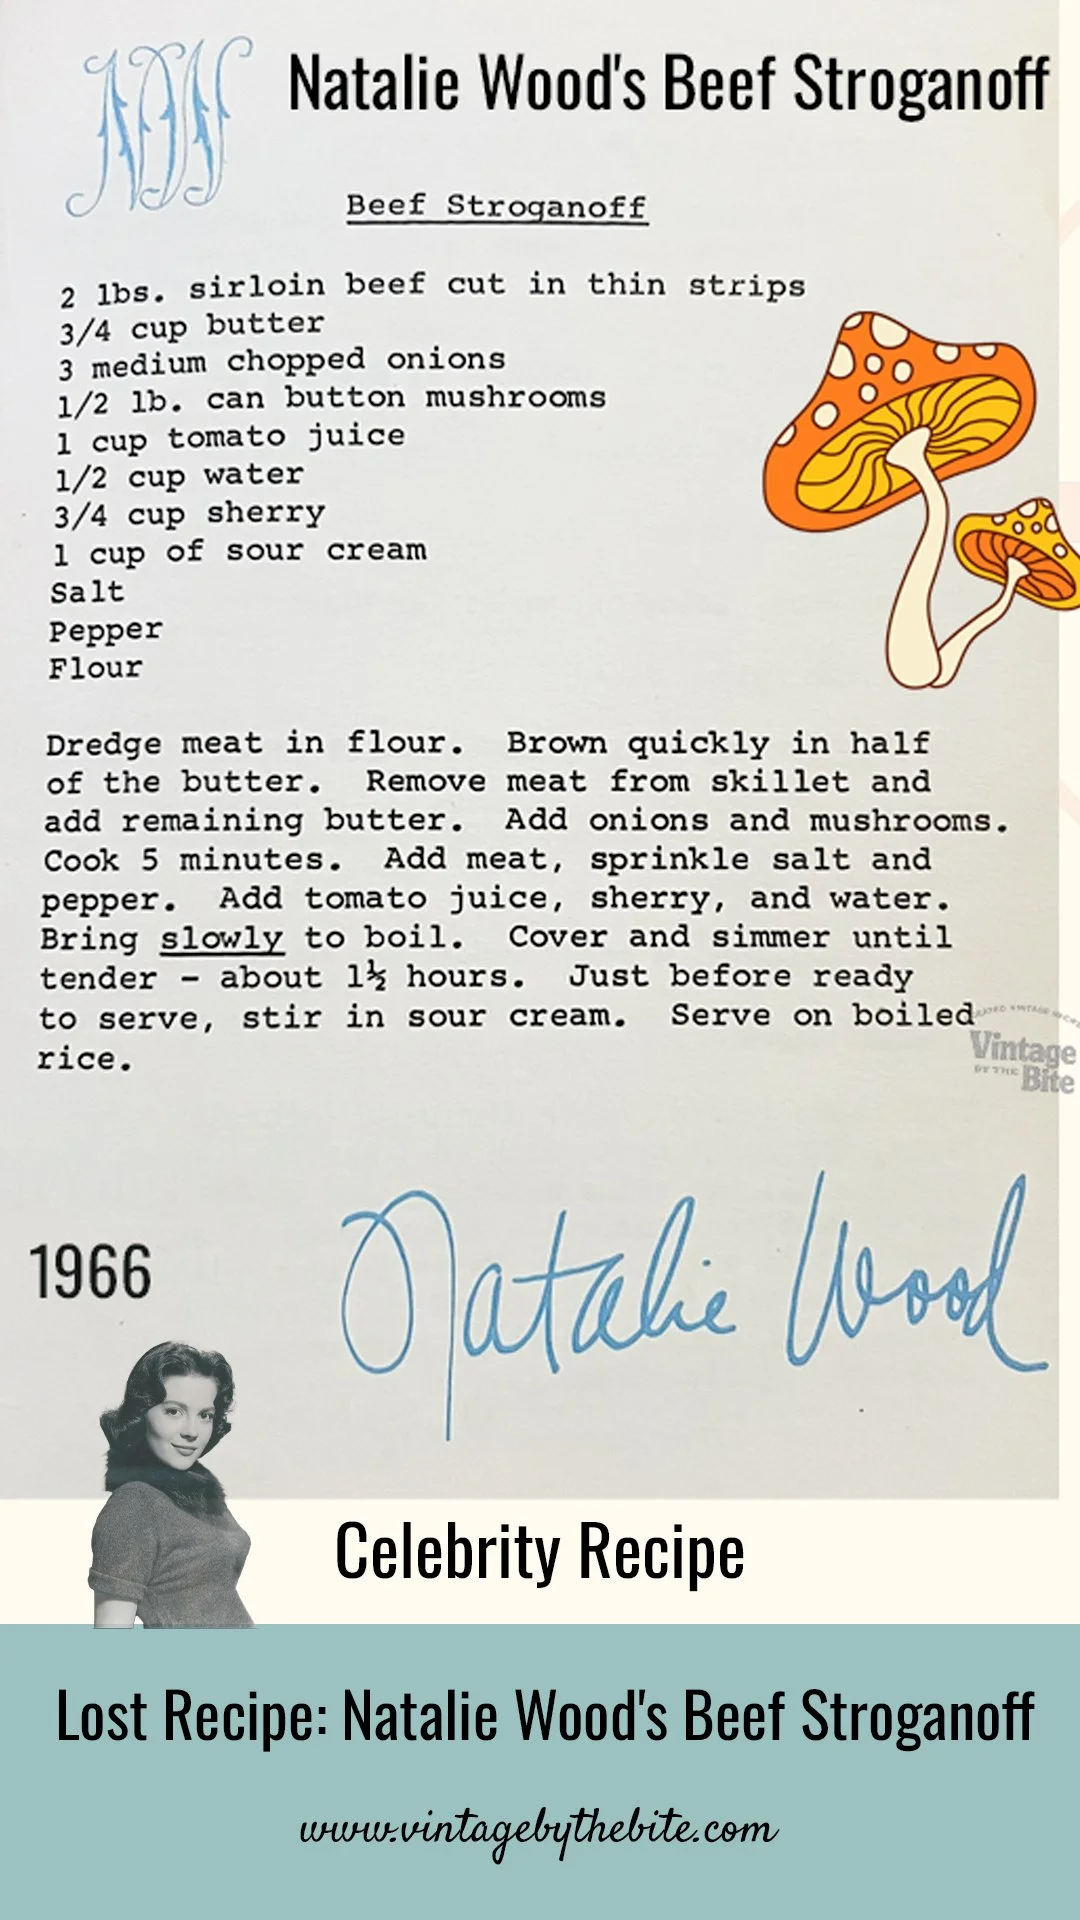 NW
Natalie Wood's Beef Stroganoff
Beef Stroganoff
2 lbs. sirloin beef cut in thin strips
3/4 cup butter
3 medium chopped onions
1/2 lb. can button mushrooms
1 cup tomato juice
1/2 cup water
3/4 cup sherry
1 cup of sour cream
Salt
Pepper
Flour
Dredge meat in flour. Brown quickly in half
of the butter. Remove meat from skillet and
add remaining butter. Add onions and mushrooms.
Cook 5 minutes. Add meat, sprinkle salt and
pepper. Add tomato juice, sherry, and water.
Bring slowly to boil. Cover and simmer until
tender - about 1½ hours. Just before ready
to serve, stir in sour cream. Serve on boiled
rice.
Vintage
BY THE Bite
1966
Natalie Wood
Celebrity Recipe
Lost Recipe: Natalie Wood's Beef Stroganoff
www.vintagebythebite.com